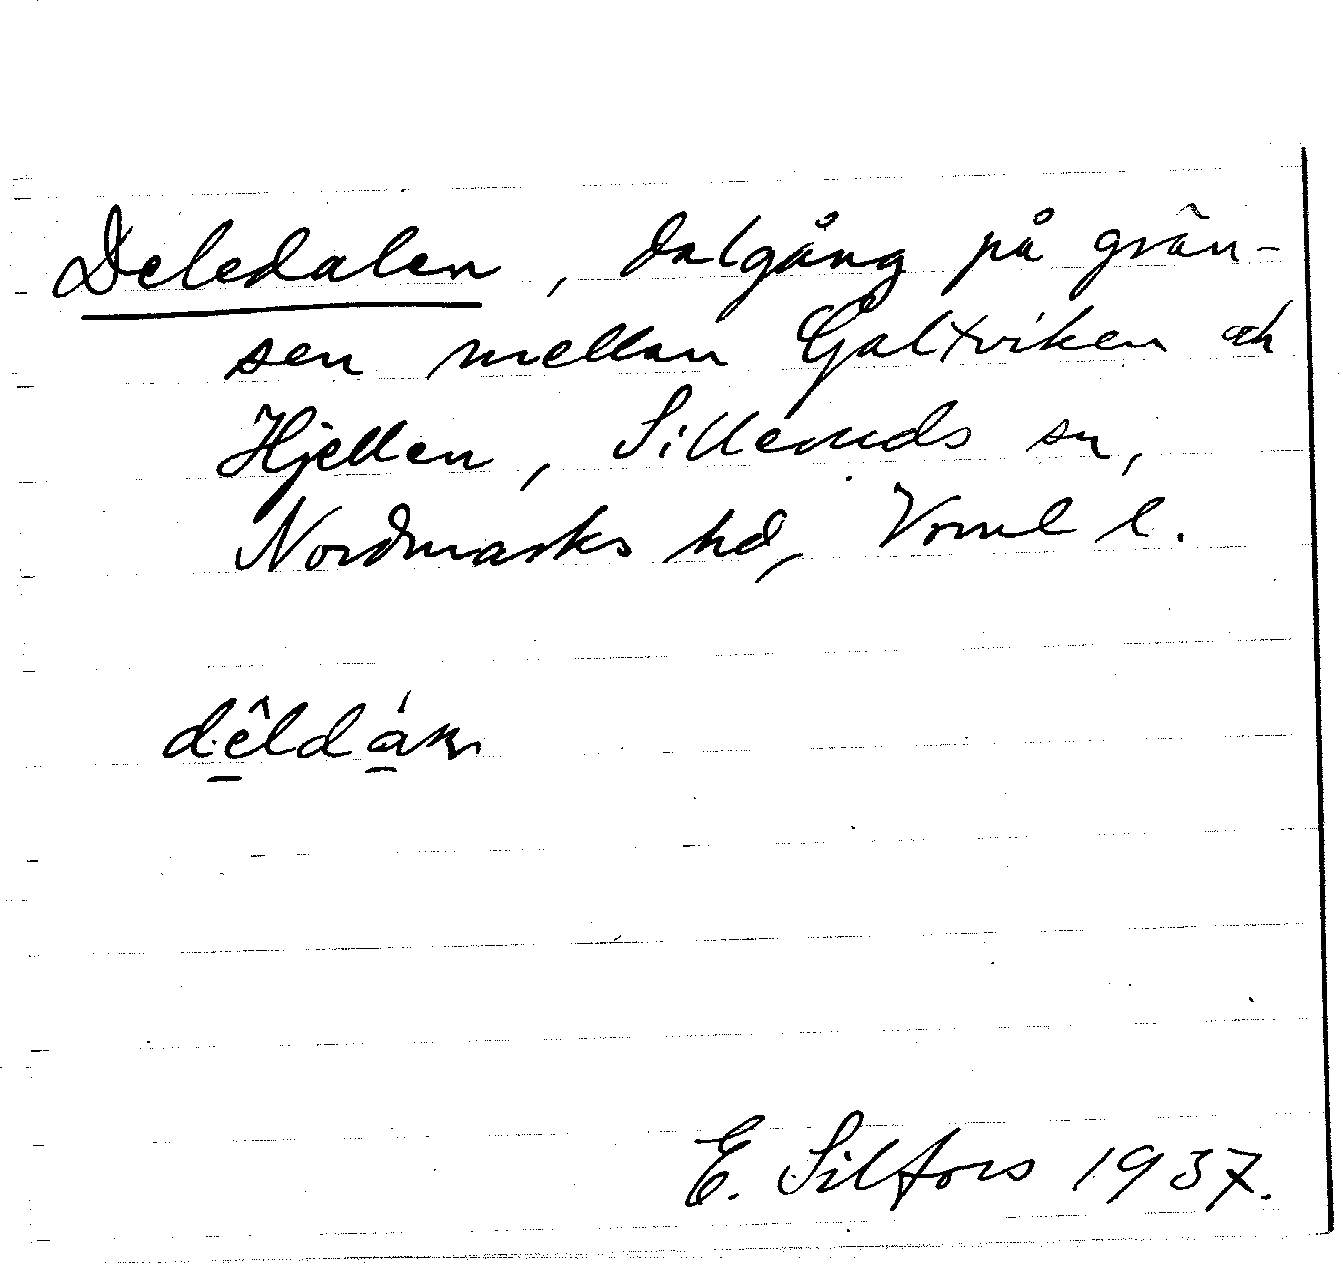 Deledalen, dalgång på grän-
sen mellan Galtviken och
Hjellen, Silleruds sn,
Nordmarks hd, Vrml l.
E. Silfors 1937.